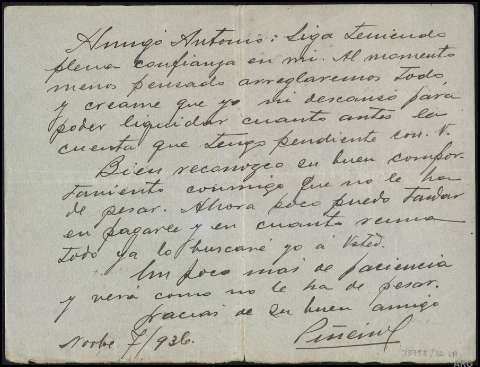 Amigo Antonio: Siga teniendo
plena confianza en mi. Al momento
menos pensado arreglaremos todo
y creame que yo ni descanso para
poder liquidar cuanto antes la
cuenta que tengo pendiente con V.
Bien reconozco su buen compor-
tamiento conmigo que no le ha
de pesar. Ahora poco puedo tardar
en pagarle y en cuanto reuna
todo ya lo buscaré yo á Vsted.
Un poco mas de paciencia
y verá como no le ha de pesar.
Gracias de su buen amigo
Piñeiro
Novbe 7/936.